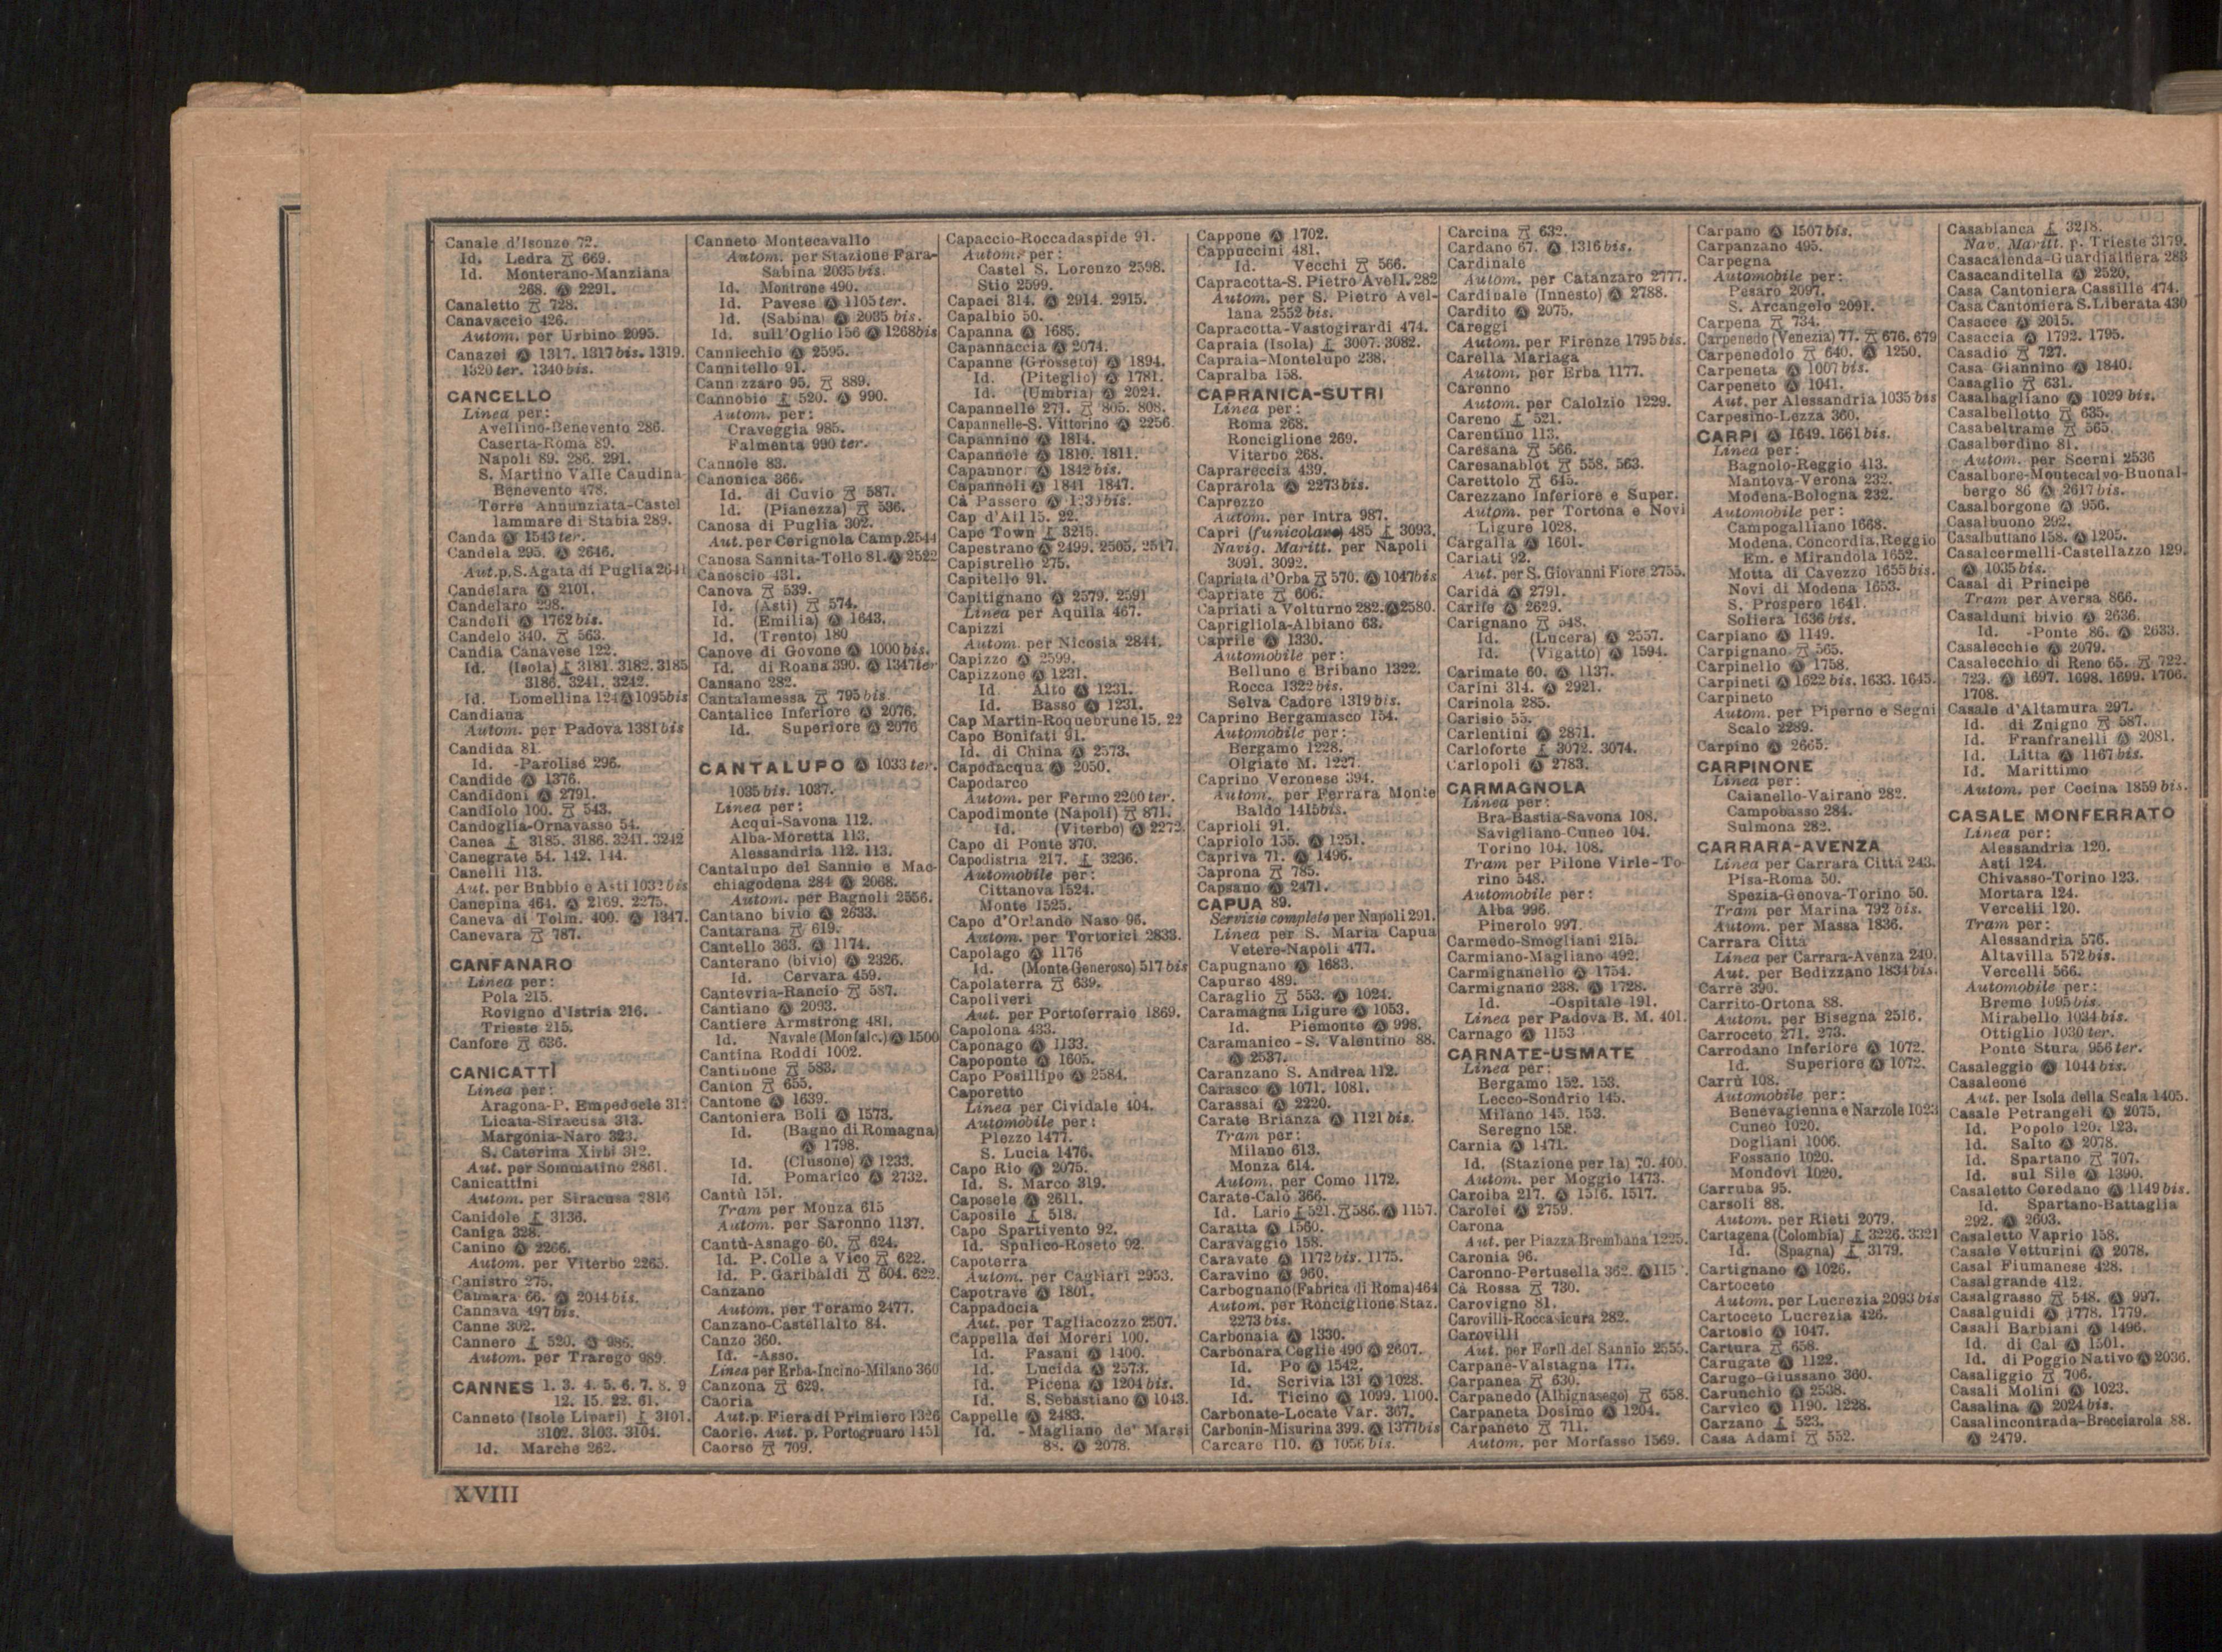 Canale d'Isonzo 72.
Id. Ledra 669.
Id. Monterano-Manziana
268. Ⓐ 2291.
Canaletto 728.
Canavaccio 426.
Autom. per Urbino 2095.
Canazei Ⓐ 1317. 1317 bis. 1319.
1320 ter. 1340 bis.
CANCELLO
Linea per:
Avellino-Benevento 286.
Caserta-Roma 89.
Napoli 89. 286. 291.
S. Martino Valle Caudina-
Benevento 478.
Torre Annunziata-Castel
lammare di Stabia 289.
Canda Ⓐ 1543 ter.
Candela 295. Ⓐ 2646.
Aut.p.S.Agata di Puglia
Candelara Ⓐ 2101.
Candelaro 298.
Candeli Ⓐ 1762 bis.
Candelo 340. 563.
Candia Canavese 122.
Id. (Isola) 3181. 3182. 3185
3186. 3241. 3242.
Id. Lomellina 124 Ⓐ 1095 bis
Candiana
Autom. per Padova 1381 bis
Candida 81.
Id. -Parolise 296.
Candide Ⓐ 1376.
Candidoni Ⓐ 2791.
Candiolo 100. 543.
Candoglia-Ornavasso 54.
Canea 3185. 3186. 3241. 3242
Canegrate 54. 142. 144.
Canelli 113.
Aut. per Bubbio e Asti 1032 bis
Canepina 464. Ⓐ 2169. 2275.
Caneva di Tolm. 400. Ⓐ 1347.
Canevara 787.
CANFANARO
Linea per:
Pola 215.
Rovigno d'Istria 216.
Trieste 215.
Canfore 636.
CANICATTÌ
Linea per:
Aragona-P. Empedocle
Licata-Siracusa 313.
Margonia-Naro 323.
S. Caterina Xirbi 312.
Aut. per Sommatino 2861.
Canicattini
Autom. per Siracusa 2816
Canidole 3136.
Caniga 328.
Canino Ⓐ 2266.
Autom. per Viterbo 2265.
Canistro 275.
Cannara 66. Ⓐ 2044 bis.
Cannava 497 bis.
Canne 302.
Cannero 520. Ⓐ 986.
Autom. per Trarego 989.
CANNES 1. 3. 4. 5. 6. 7. 8. 9
12. 15. 22. 61.
Canneto (Isole Lipari) 3101.
3102. 3103. 3104.
Id. Marche 262.
Canneto Montecavallo
Autom. per Stazione Fara-
Sabina 2035 bis.
Id. Montrone 490.
Id. Pavese Ⓐ 1105 ter.
Id. (Sabina) Ⓐ 2035 bis.
Id. sull'Oglio 156 Ⓐ 1268 bis
Cannicchio Ⓐ 2595.
Cannitello 91.
Cannizzaro 95. 889.
Cannobio 520. Ⓐ 990.
Autom. per:
Craveggia 985.
Falmenta 990 ter.
Cannole 83.
Canonica 366.
Id. di Cuvio 587.
Id. (Pianezza) 536.
Canosa di Puglia 302.
Aut. per Cerignola Camp. 2544
Canosa Sannita-Tollo 81. Ⓐ 2522
Canoscio 431.
Canova 539.
Id. (Asti) 574.
Id. (Emilia) Ⓐ 1643.
Id. (Trento) 180
Canove di Govone Ⓐ 1000 bis.
Id. di Roana 390. Ⓐ 1347 ter
Cansano 282.
Cantalamessa 795 bis.
Cantalice Inferiore Ⓐ 2076.
Id. Superiore Ⓐ 2076
CANTALUPO Ⓐ 1033 ter.
1035 bis. 1037.
Linea per:
Acqui-Savona 112.
Alba-Moretta 113.
Alessandria 112. 113.
Cantalupo del Sannio e Mac-
chiagodena 284 Ⓐ 2068.
Autom. per Bagnoli 2556.
Cantano bivio Ⓐ 2633.
Cantarana 619.
Cantello 363. Ⓐ 1174.
Canterano (bivio) Ⓐ 2326.
Id. Cervara 459.
Cantevria-Rancio 587.
Cantiano Ⓐ 2093.
Cantiere Armstrong 481.
Id. Navale (Monfalc.) Ⓐ 1500
Cantina Roddi 1002.
Cantinone 583.
Canton 655.
Cantone Ⓐ 1639.
Cantoniera Boli Ⓐ 1573.
Id. (Bagno di Romagna)
Ⓐ 1798.
Id. (Clusone) Ⓐ 1233.
Id. Pomarico Ⓐ 2732.
Cantù 151.
Tram per Monza 615
Autom. per Saronno 1137.
Cantù-Asnago 60. 624.
Id. P. Colle a Vico 622.
Id. P. Garibaldi 604. 622.
Canzano
Autom. per Teramo 2477.
Canzano-Castellalto 84.
Canzo 360.
Id. -Asso.
Linea per Erba-Incino-Milano 360
Canzona 629.
Caoria
Aut.p. Fiera di Primiero 1326
Caorle. Aut. p. Portogruaro 1451
Caorso 709.
Capaccio-Roccadaspide 91.
Autom. per:
Castel S. Lorenzo 2598.
Stio 2599.
Capaci 314. Ⓐ 2914. 2915.
Capalbio 50.
Capanna Ⓐ 1685.
Capannaccia Ⓐ 2074.
Capanne (Grosseto) Ⓐ 1894.
Id. (Piteglio) Ⓐ 1781.
Id. (Umbria) Ⓐ 2024.
Capannelle 271. 805. 808.
Capannelle-S. Vittorino Ⓐ 2256.
Capannino Ⓐ 1814.
Capannole Ⓐ 1810. 1811.
Capannori Ⓐ 1842 bis.
Capannoli Ⓐ 1841 1847.
Cà Passero Ⓐ
Cap d'Ail 15. 22.
Cape Town 3215.
Capestrano Ⓐ 2499. 2505. 2517.
Capistrello 275.
Capitello 91.
Capitignano Ⓐ 2579. 2591
Linea per Aquila 467.
Capizzi
Autom. per Nicosia 2844.
Capizzo Ⓐ 2599.
Capizzone Ⓐ 1231.
Id. Alto Ⓐ 1231.
Id. Basso Ⓐ 1231.
Cap Martin-Roquebrune 15. 22
Capo Bonifati 91.
Id. di China Ⓐ 2573.
Capodacqua Ⓐ 2050.
Capodarco
Autom. per Fermo 2200 ter.
Capodimonte (Napoli) 871.
Id. (Viterbo) Ⓐ 2272.
Capo di Ponte 370.
Capodistria 217. 3236.
Automobile per:
Cittanova 1524.
Monte 1525.
Capo d'Orlando Naso 96.
Autom. per Tortorici 2833.
Capolago Ⓐ 1176
Id. (Monte Generoso) 517 bis
Capolaterra 639.
Capoliveri
Aut. per Portoferraio 1869.
Capolona 433.
Caponago Ⓐ 1133.
Capoponte Ⓐ 1605.
Capo Posillipo Ⓐ 2584.
Caporetto
Linea per Cividale 404.
Automobile per:
Plezzo 1477.
S. Lucia 1476.
Capo Rio Ⓐ 2075.
Id. S. Marco 319.
Caposele Ⓐ 2611.
Caposile 518.
Capo Spartivento 92.
Id. Spulico-Roseto 92.
Capoterra
Autom. per Cagliari 2953.
Capotrave Ⓐ 1801.
Cappadocia
Aut. per Tagliacozzo 2507.
Cappella dei Moreri 100.
Id. Fasani Ⓐ 1400.
Id. Lucida Ⓐ 2573.
Id. Picena Ⓐ 1204 bis.
Id. S. Sebastiano Ⓐ 1043.
Cappelle Ⓐ 2483.
Id. -Magliano de' Marsi
88. Ⓐ 2078.
Cappone Ⓐ 1702.
Cappuccini 481.
Id. Vecchi 566.
Capracotta-S. Pietro Avell. 282
Autom. per S. Pietro Avel-
lana 2552 bis.
Capracotta-Vastogirardi 474.
Capraia (Isola) 3007. 3082.
Capraia-Montelupo 238.
Capralba 158.
CAPRANICA-SUTRI
Linea per:
Roma 268.
Ronciglione 269.
Viterbo 268.
Caprareccia 439.
Caprarola Ⓐ 2273 bis.
Caprezzo
Autom. per Intra 987.
Capri (funicolare) 485 3093.
Navig. Maritt. per Napoli
3091. 3092.
Capriata d'Orba 570. Ⓐ 1047 bis
Capriate 606.
Capriati a Volturno 282. Ⓐ 2580.
Caprigliola-Albiano 63.
Caprile Ⓐ 1330.
Automobile per:
Belluno e Bribano 1322.
Rocca 1322 bis.
Selva Cadore 1319 bis.
Caprino Bergamasco 154.
Automobile per:
Bergamo 1228.
Olgiate M. 1227.
Caprino Veronese 394.
Autom. per Ferrara Monte
Baldo 1415 bis.
Caprioli 91.
Capriolo 155. Ⓐ 1251.
Capriva 71. Ⓐ 1496.
Caprona 785.
Capsano Ⓐ 2471.
CAPUA 89.
Servizio completo per Napoli 291.
Linea per S. Maria Capua
Vetere-Napoli 477.
Capugnano Ⓐ 1683.
Capurso 489.
Caraglio 553. Ⓐ 1024.
Caramagna Ligure Ⓐ 1053.
Id. Piemonte Ⓐ 998.
Caramanico - S. Valentino 88.
Ⓐ 2537.
Caranzano S. Andrea 112.
Carasco Ⓐ 1071. 1081.
Carassai Ⓐ 2220.
Carate Brianza Ⓐ 1121 bis.
Tram per:
Milano 613.
Monza 614.
Autom. per Como 1172.
Carate-Calò 366.
Id. Lario 521. 586. Ⓐ 1157.
Caratta Ⓐ 1560.
Caravaggio 158.
Caravate Ⓐ 1172 bis. 1175.
Caravino Ⓐ 960.
Carbognano (Fabrica di Roma) 464
Autom. per Ronciglione Staz.
2273 bis.
Carbonaia Ⓐ 1330.
Carbonara Ceglie 490 Ⓐ 2607.
Id. Po Ⓐ 1542.
Id. Scrivia 131 Ⓐ 1028.
Id. Ticino Ⓐ 1099. 1100.
Carbonate-Locate Var. 367.
Carbonin-Misurina 399. Ⓐ 1377 bis
Carcare 110. Ⓐ 1056 bis.
Carcina 632.
Cardano 67. Ⓐ 1316 bis.
Cardinale
Autom. per Catanzaro 2777.
Cardinale (Innesto) Ⓐ 2788.
Cardito Ⓐ 2075.
Careggi
Autom. per Firenze 1795 bis.
Carella Mariaga
Autom. per Erba 1177.
Carenno
Autom. per Calolzio 1229.
Careno 521.
Carentino 113.
Caresana 566.
Caresanablot 558. 563.
Carettolo 645.
Carezzano Inferiore e Super.
Autom. per Tortona e Novi
Ligure 1028.
Cargalla Ⓐ 1601.
Cariati 92.
Aut. per S. Giovanni Fiore 2755.
Caridà Ⓐ 2791.
Carife Ⓐ 2629.
Carignano 548.
Id. (Lucera) Ⓐ 2557.
Id. (Vigatto) Ⓐ 1594.
Carimate 60. Ⓐ 1137.
Carini 314. Ⓐ 2921.
Carinola 285.
Carisio 55.
Carlentini Ⓐ 2871.
Carloforte 3072. 3074.
Carlopoli Ⓐ 2783.
CARMAGNOLA
Linea per:
Bra-Bastia-Savona 108.
Savigliano-Cuneo 104.
Torino 104. 108.
Tram per Pilone Virle-To-
rino 548.
Automobile per:
Alba 996.
Pinerolo 997.
Carmedo-Smogliani 215.
Carmiano-Magliano 492.
Carmignanello Ⓐ 1754.
Carmignano 238. Ⓐ 1728.
Id. -Ospitale 191.
Linea per Padova B. M. 401.
Carnago Ⓐ 1153
CARNATE-USMATE
Linea per:
Bergamo 152. 153.
Lecco-Sondrio 145.
Milano 145. 153.
Seregno 152.
Carnia Ⓐ 1471.
Id. (Stazione per la) 70. 400.
Autom. per Moggio 1473.
Caroiba 217. Ⓐ 1516. 1517.
Carolei Ⓐ 2759.
Carona
Aut. per Piazza Brembana 1225.
Caronia 96.
Caronno-Pertusella 362.
Cà Rossa 730.
Carovigno 81.
Carovilli-Roccasicura 282.
Carovilli
Aut. per Forlì del Sannio 2555.
Carpanè-Valstagna 177.
Carpanea 630.
Carpanedo (Albignasego) 658.
Carpaneta Dosimo Ⓐ 1204.
Carpaneto 711.
Autom. per Morfasso 1569.
Carpano Ⓐ 1507 bis.
Carpanzano 495.
Carpegna
Automobile per:
Pesaro 2097.
S. Arcangelo 2091.
Carpena 734.
Carpenedo (Venezia) 77. 676. 679
Carpenedolo 640. Ⓐ 1250.
Carpeneta Ⓐ 1007 bis.
Carpeneto Ⓐ 1041.
Aut. per Alessandria 1035 bis
Carpesino-Lezza 360.
CARPI Ⓐ 1649. 1661 bis.
Linea per:
Bagnolo-Reggio 413.
Mantova-Verona 232.
Modena-Bologna 232.
Automobile per:
Campogalliano 1668.
Modena, Concordia, Reggio
Em. e Mirandola 1652.
Motta di Cavezzo 1655 bis.
Novi di Modena 1653.
S. Prospero 1641.
Soliera 1636 bis.
Carpiano Ⓐ 1149.
Carpignano 565.
Carpinello Ⓐ 1758.
Carpineti Ⓐ 1622 bis. 1633. 1645.
Carpineto
Autom. per Piperno e Segni
Scalo 2289.
Carpino Ⓐ 2665.
CARPINONE
Linea per:
Caianello-Vairano 282.
Campobasso 284.
Sulmona 282.
CARRARA-AVENZA
Linea per Carrara Città 243.
Pisa-Roma 50.
Spezia-Genova-Torino 50.
Tram per Marina 792 bis.
Autom. per Massa 1836.
Carrara Città
Linea per Carrara-Avenza 240.
Aut. per Bedizzano 1834 bis.
Carrè 390.
Carrito-Ortona 88.
Autom. per Bisegna 2516.
Carroceto 271. 273.
Carrodano Inferiore Ⓐ 1072.
Id. Superiore Ⓐ 1072.
Carrù 108.
Automobile per:
Benevagienna e Narzole 1023
Cuneo 1020.
Dogliani 1006.
Fossano 1020.
Mondovì 1020.
Carruba 95.
Carsoli 88.
Autom. per Rieti 2079.
Cartagena (Colombia) 3226. 3321
Id. (Spagna) 3179.
Cartignano Ⓐ 1026.
Cartoceto
Autom. per Lucrezia 2093 bis
Cartoceto Lucrezia 426.
Cartosio Ⓐ 1047.
Cartura 658.
Carugate Ⓐ 1122.
Carugo-Giussano 360.
Carunchio Ⓐ 2538.
Carvico Ⓐ 1190. 1228.
Carzano 523.
Casa Adami 552.
Casabianca 3218.
Nav. Maritt. p. Trieste 3179.
Casacalenda-Guardialfiera 283
Casacanditella Ⓐ 2520.
Casa Cantoniera Cassille 474.
Casa Cantoniera S. Liberata 430
Casacce Ⓐ 2015.
Casaccia Ⓐ 1792. 1795.
Casadio 727.
Casa Giannino Ⓐ 1840.
Casaglio 631.
Casalbagliano Ⓐ 1029 bis.
Casalbellotto 635.
Casabeltrame 565.
Casalbordino 81.
Autom. per Scerni 2536
Casalbore-Montecalvo-Buonal-
bergo 86 Ⓐ 2617 bis.
Casalborgone Ⓐ 956.
Casalbuono 292.
Casalbuttano 158. Ⓐ 1205.
Casalcermelli-Castellazzo 129.
Ⓐ 1035 bis.
Casal di Principe
Tram per Aversa 866.
Casalduni bivio Ⓐ 2636.
Id. -Ponte 86. Ⓐ 2633.
Casalecchie Ⓐ 2079.
Casalecchio di Reno 65. 722.
723. Ⓐ 1697. 1698. 1699. 1706.
1708.
Casale d'Altamura 297.
Id. di Znigno 587.
Id. Franfranelli Ⓐ 2081.
Id. Litta Ⓐ 1167 bis.
Id. Marittimo
Autom. per Cecina 1859 bis.
CASALE MONFERRATO
Linea per:
Alessandria 120.
Asti 124.
Chivasso-Torino 123.
Mortara 124.
Vercelli 120.
Tram per:
Alessandria 576.
Altavilla 572 bis.
Vercelli 566.
Automobile per:
Breme 1095 bis.
Mirabello 1034 bis.
Ottiglio 1030 ter.
Ponte Stura 956 ter.
Casaleggio Ⓐ 1044 bis.
Casaleone
Aut. per Isola della Scala 1405.
Casale Petrangeli Ⓐ 2075.
Id. Popolo 120. 123.
Id. Salto Ⓐ 2078.
Id. Spartano 707.
Id. sul Sile Ⓐ 1390.
Casaletto Ceredano Ⓐ 1149 bis.
Id. Spartano-Battaglia
292. Ⓐ 2603.
Casaletto Vaprio 158.
Casale Vetturini Ⓐ 2078.
Casal Fiumanese 428.
Casalgrande 412.
Casalgrasso 548. Ⓐ 997.
Casalguidi Ⓐ 1778. 1779.
Casali Barbiani Ⓐ 1496.
Id. di Cal Ⓐ 1501.
Id. di Poggio Nativo Ⓐ 2036.
Casaliggio 706.
Casali Molini Ⓐ 1023.
Casalina Ⓐ 2024 bis.
Casalincontrada-Brecciarola 88.
Ⓐ 2479.
XVIII